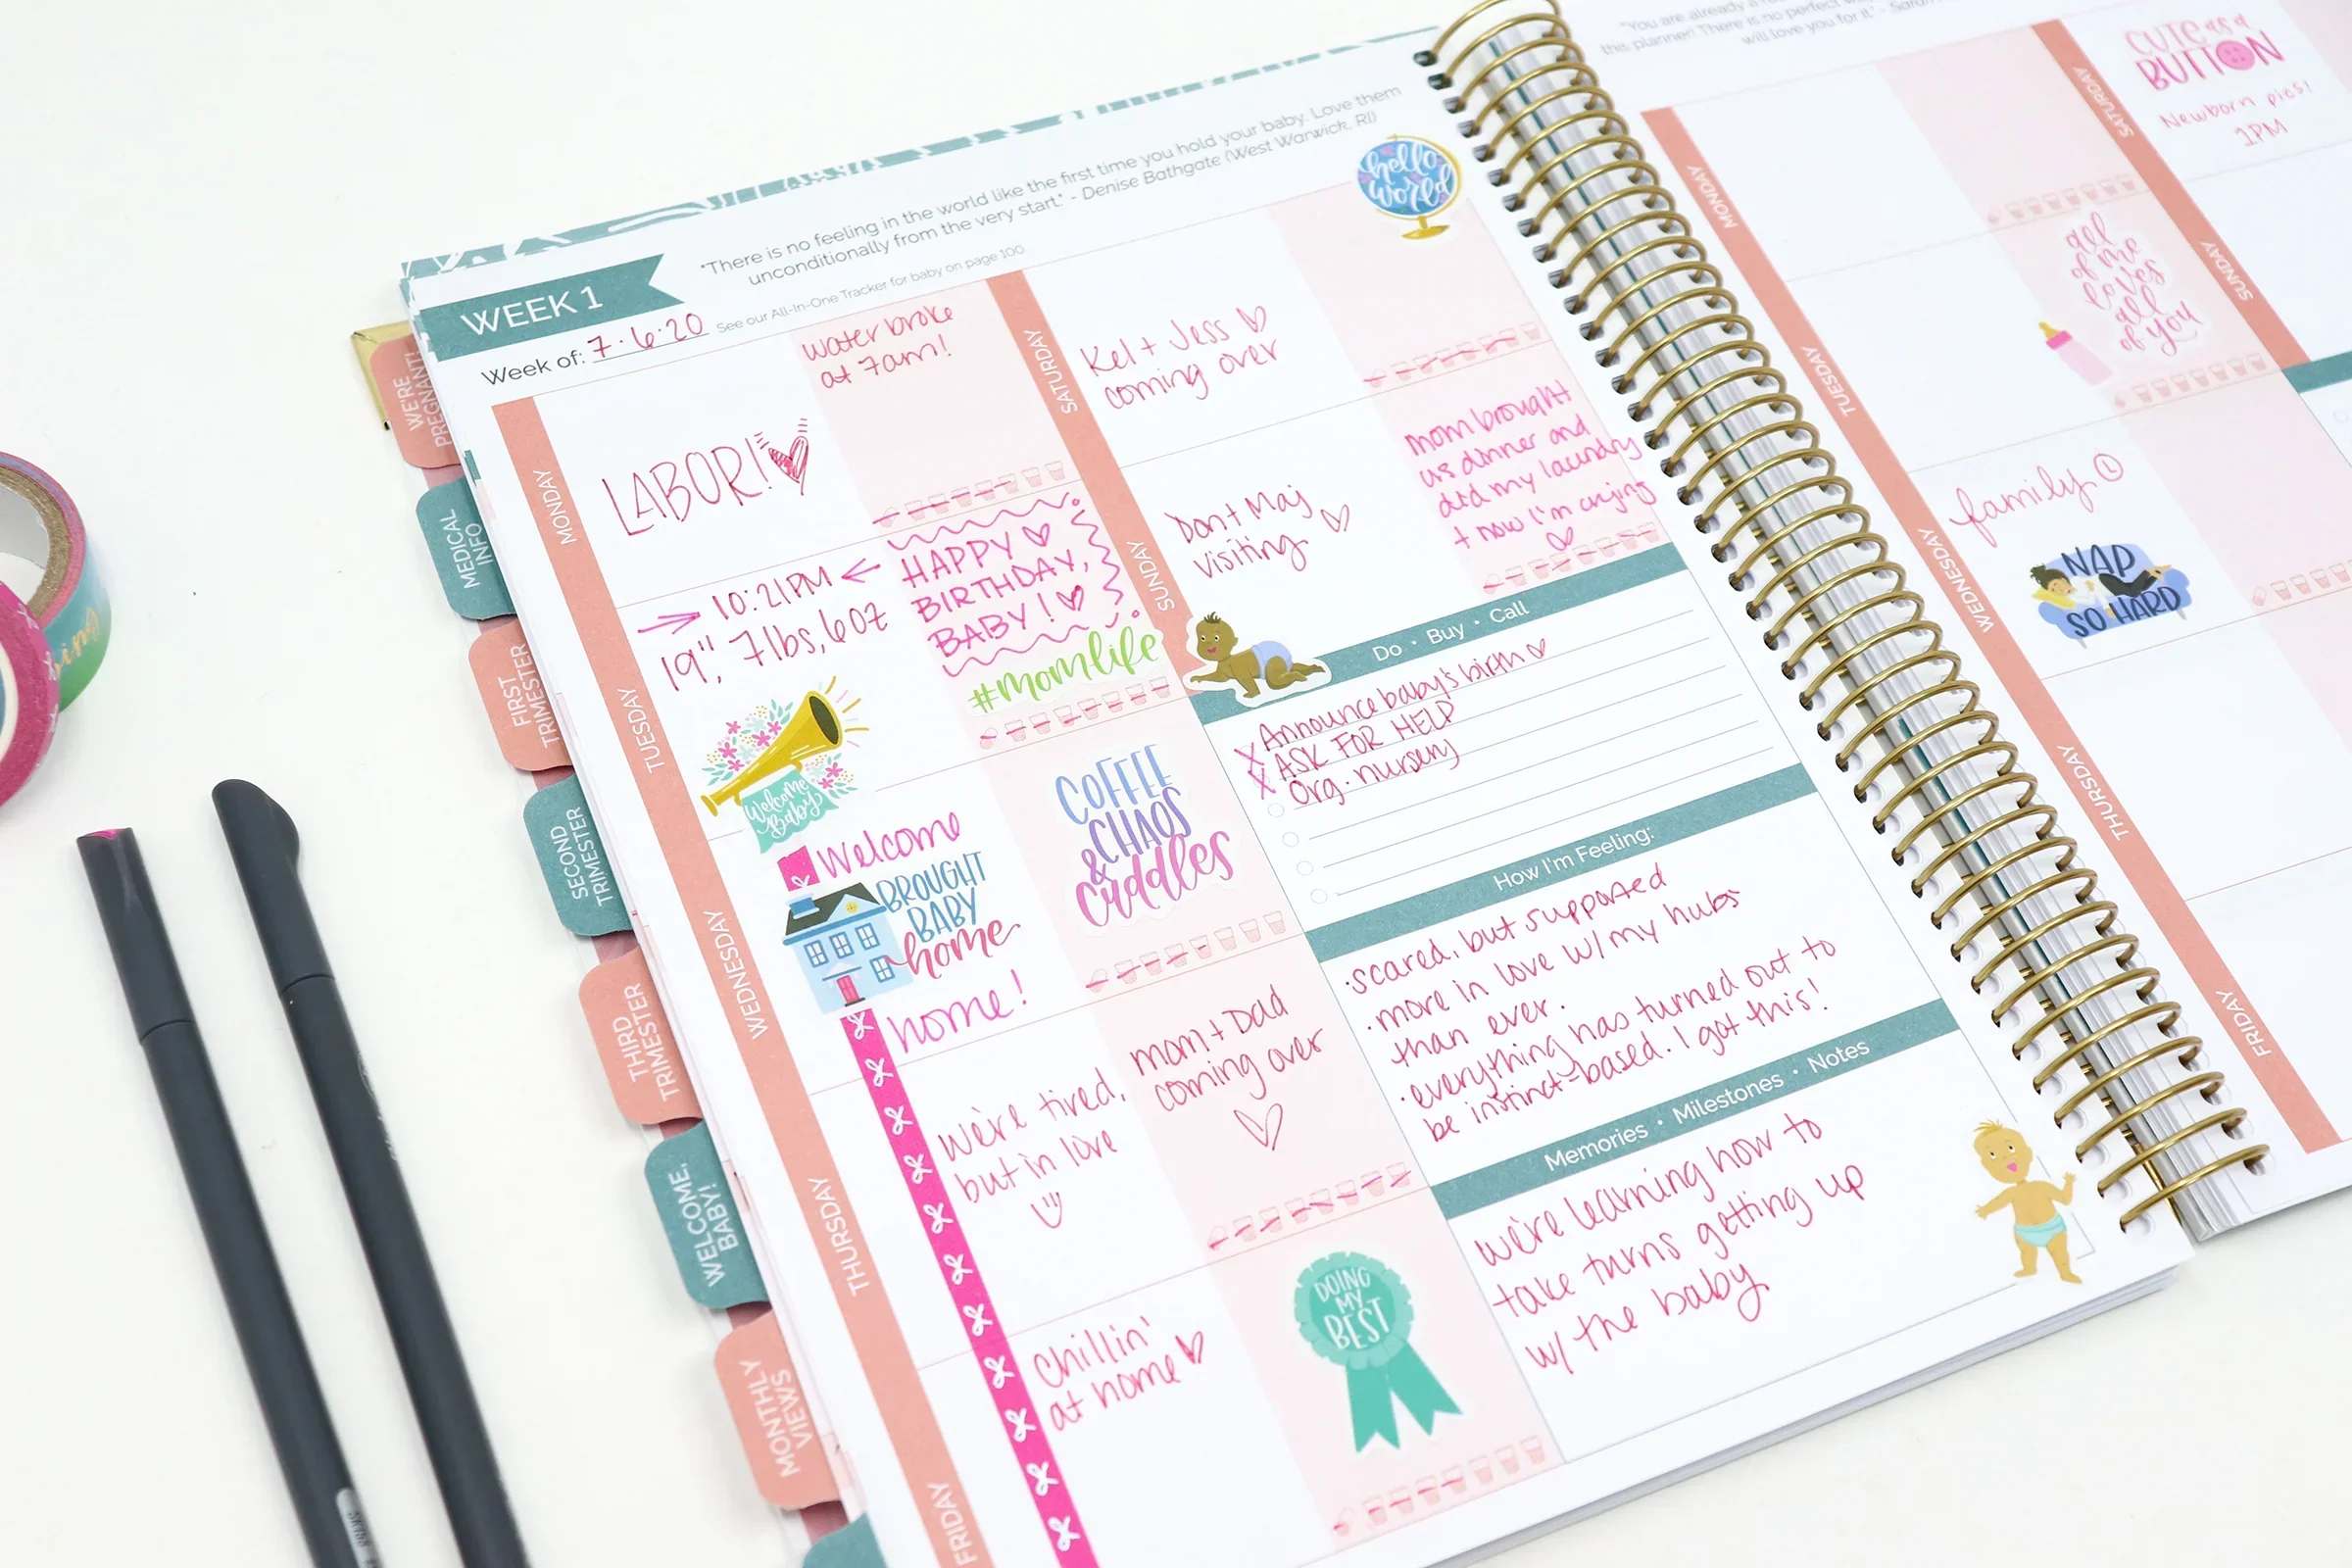 "There is no feeling in the world like the first time you hold your baby. Love them
unconditionally from the very start." - Denise Bathgate (West Warwick, RI)
See our All-In-One Tracker for baby on page 100
WEEK 1
Week of: 7.6.20
hello
world
MONDAY
LABOR!
water broke
at 7am!
TUESDAY
10:21PM
19", 7lbs, 6oz
HAPPY
BIRTHDAY,
BABY!
#momlife
Welcome
Baby
WEDNESDAY
Welcome
BROUGHT
BABY
home
home!
COFFEE
CHAOS
&
cuddles
THURSDAY
We're tired,
but in love
mom + Dad
coming over
FRIDAY
Chillin'
at home
DOING
MY
BEST
SATURDAY
Kel + Jess
coming over
SUNDAY
Don + Maj
visiting
mom brought
us dinner and
did my laundry
+ now I'm crying
Do • Buy • Call
X Announce baby's birth
X ASK FOR HELP
Org. nursery
How I'm Feeling:
• scared, but supported
• more in love w/ my hubs
than ever.
• everything has turned out to
be instinct-based. I got this!
Memories • Milestones • Notes
We're learning how to
take turns getting up
w/ the baby
WE'RE
PREGNANT!
MEDICAL
INFO
FIRST
TRIMESTER
SECOND
TRIMESTER
THIRD
TRIMESTER
WELCOME,
BABY!
MONTHLY
VIEWS
"You are already a
this planner! There is no perfect
will love you for it." -
MONDAY
TUESDAY
all
of me
loves
all
of you
WEDNESDAY
family
NAP
SO HARD
THURSDAY
FRIDAY
SATURDAY
CUTE as a
BUTTON
Newborn pics!
1PM
SUNDAY